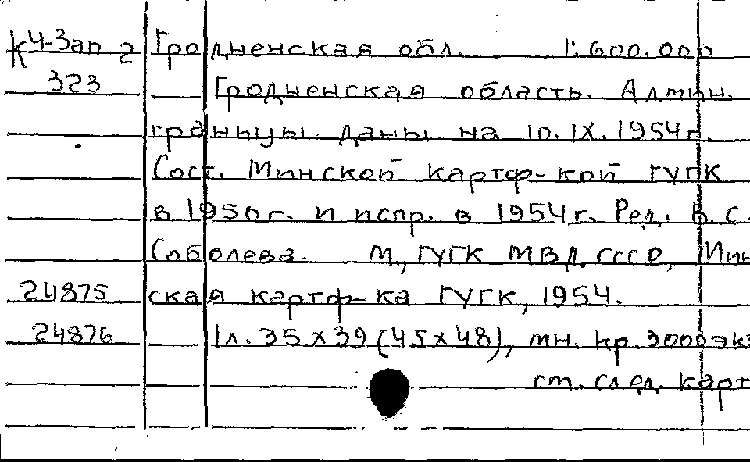 К4-Зап 2 Гродненская обл. 1:600.000
323 Гродненская область. Админ.
границы даны на 10.IX.1954г.
Сост. Минской картф-кой ГУГК
в 1950г. и испр. в 1954г. Ред. В. С.
Соболева. М., ГУГК МВД СССР, Мин
24875 ская картф-ка ГУГК, 1954.
24876 1л. 35х39 (45х48), мн. кр. 3000эк
см. след. карт